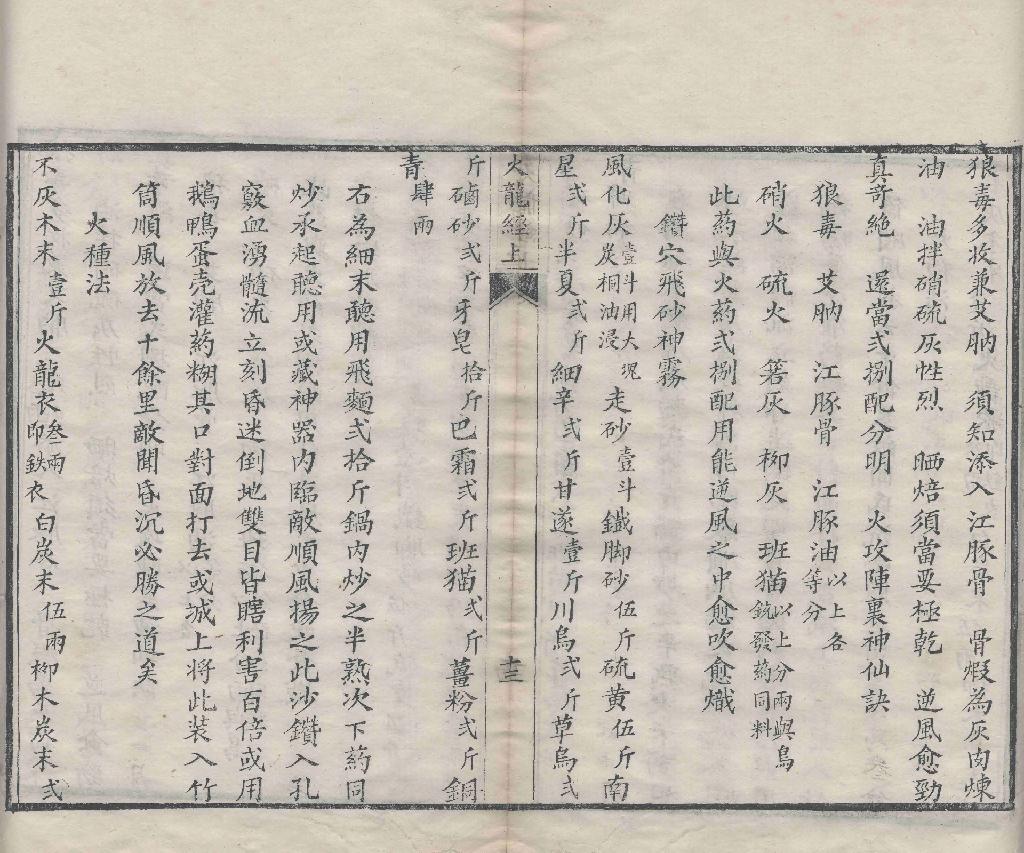 狼毒多收兼艾肭　須知添入江豚骨　骨煆為灰肉煉
油　油拌硝硫灰性烈　晒焙須當要極乾　逆風愈勁
真奇絶　還當式捌配分明　火攻陣裏神仙訣
狼毒　艾肭　江豚骨　江豚油以上各等分
硝火　硫火　箬灰　柳灰　班猫以上分兩與鳥銃發葯同料
此葯與火葯弍捌配用能逆風之中愈吹愈熾
鑽穴飛砂神霧
風化灰壹斗用大塊炭桐油浸　走砂壹斗　鐵脚砂　伍斤硫黄伍斤南
星弍斤半夏弍斤細辛弍斤甘遂壹斤川烏弍斤草烏弍
火龍經上　十三
斤硇砂弍斤牙皂拾斤巴霜弍斤班猫弍斤薑粉弍斤銅
青肆兩
右為細末聽用飛麵弍拾斤鍋内炒之半熟次下葯同
炒承起聽用或藏神器内臨敵順風揚之此沙鑽入孔
竅血湧髓流立刻昏迷倒地雙目皆瞎利害百倍或用
鵝鴨蛋壳灌葯糊其口對面打去或城上將此装入竹
筒順風放去十餘里敵聞昏沉必勝之道矣
火種法
不灰木末壹斤　火龍衣叁兩即鉄衣　白炭末　伍兩柳木炭末弍